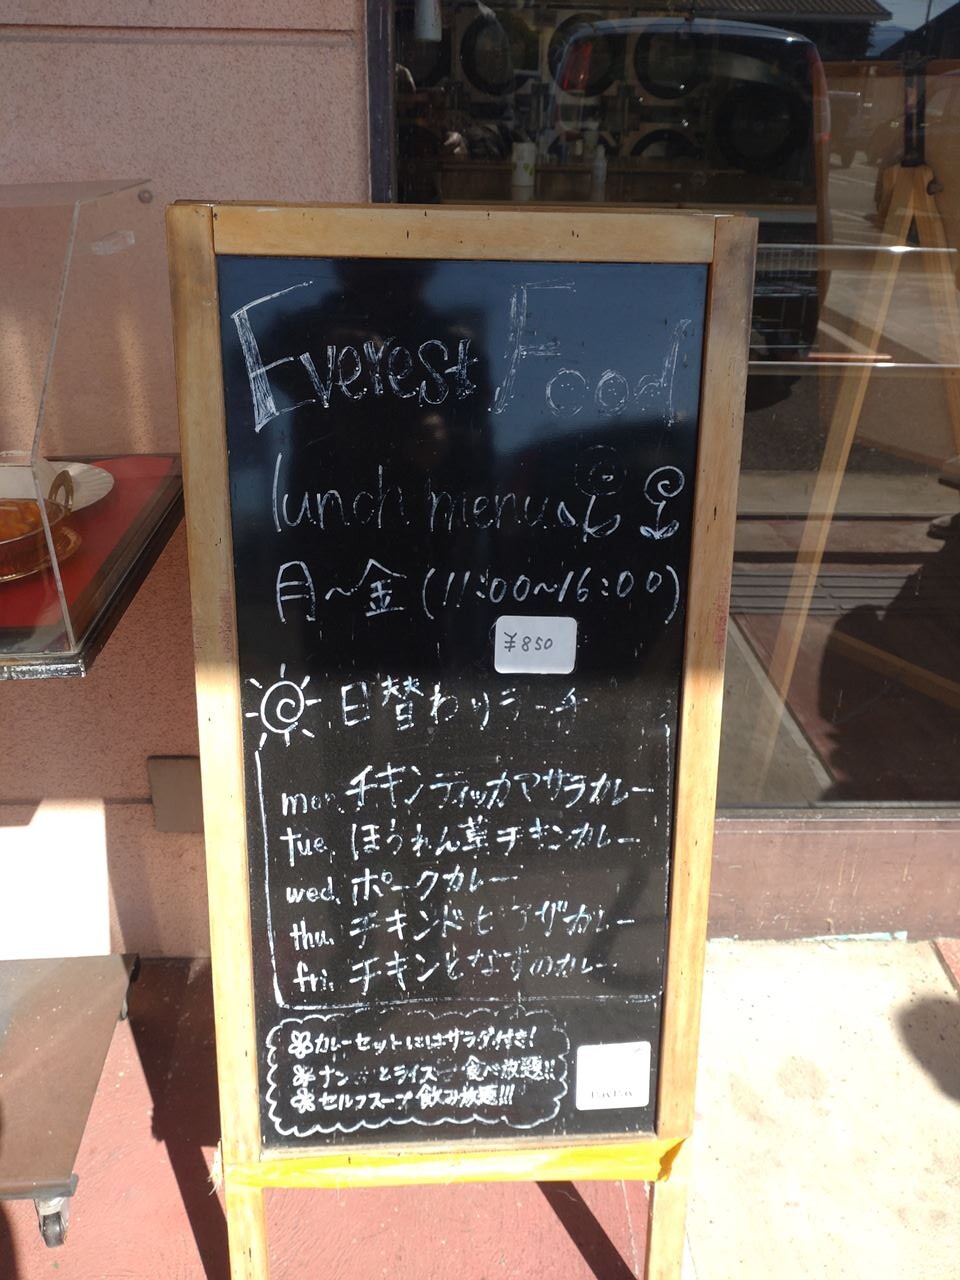 Everest Food
lunch menu
月～金(11:00～16:00)
¥850
日替わりランチ
mon. チキンティッカマサラカレー
tue. ほうれん草チキンカレー
wed. ポークカレー
thu. チキンドピアザカレー
fri. チキンとなすのカレー
カレーセットにはサラダ付き!
ナンとライス 食べ放題!!
セルフスープ飲み放題!!!
PayPay